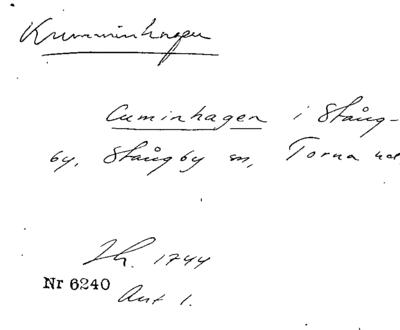 Krumminhagen
Cuminhagen i Stång-
by, Stångby sn, Torna hd
Lh. 1744
Nr 6240
Avt 1.